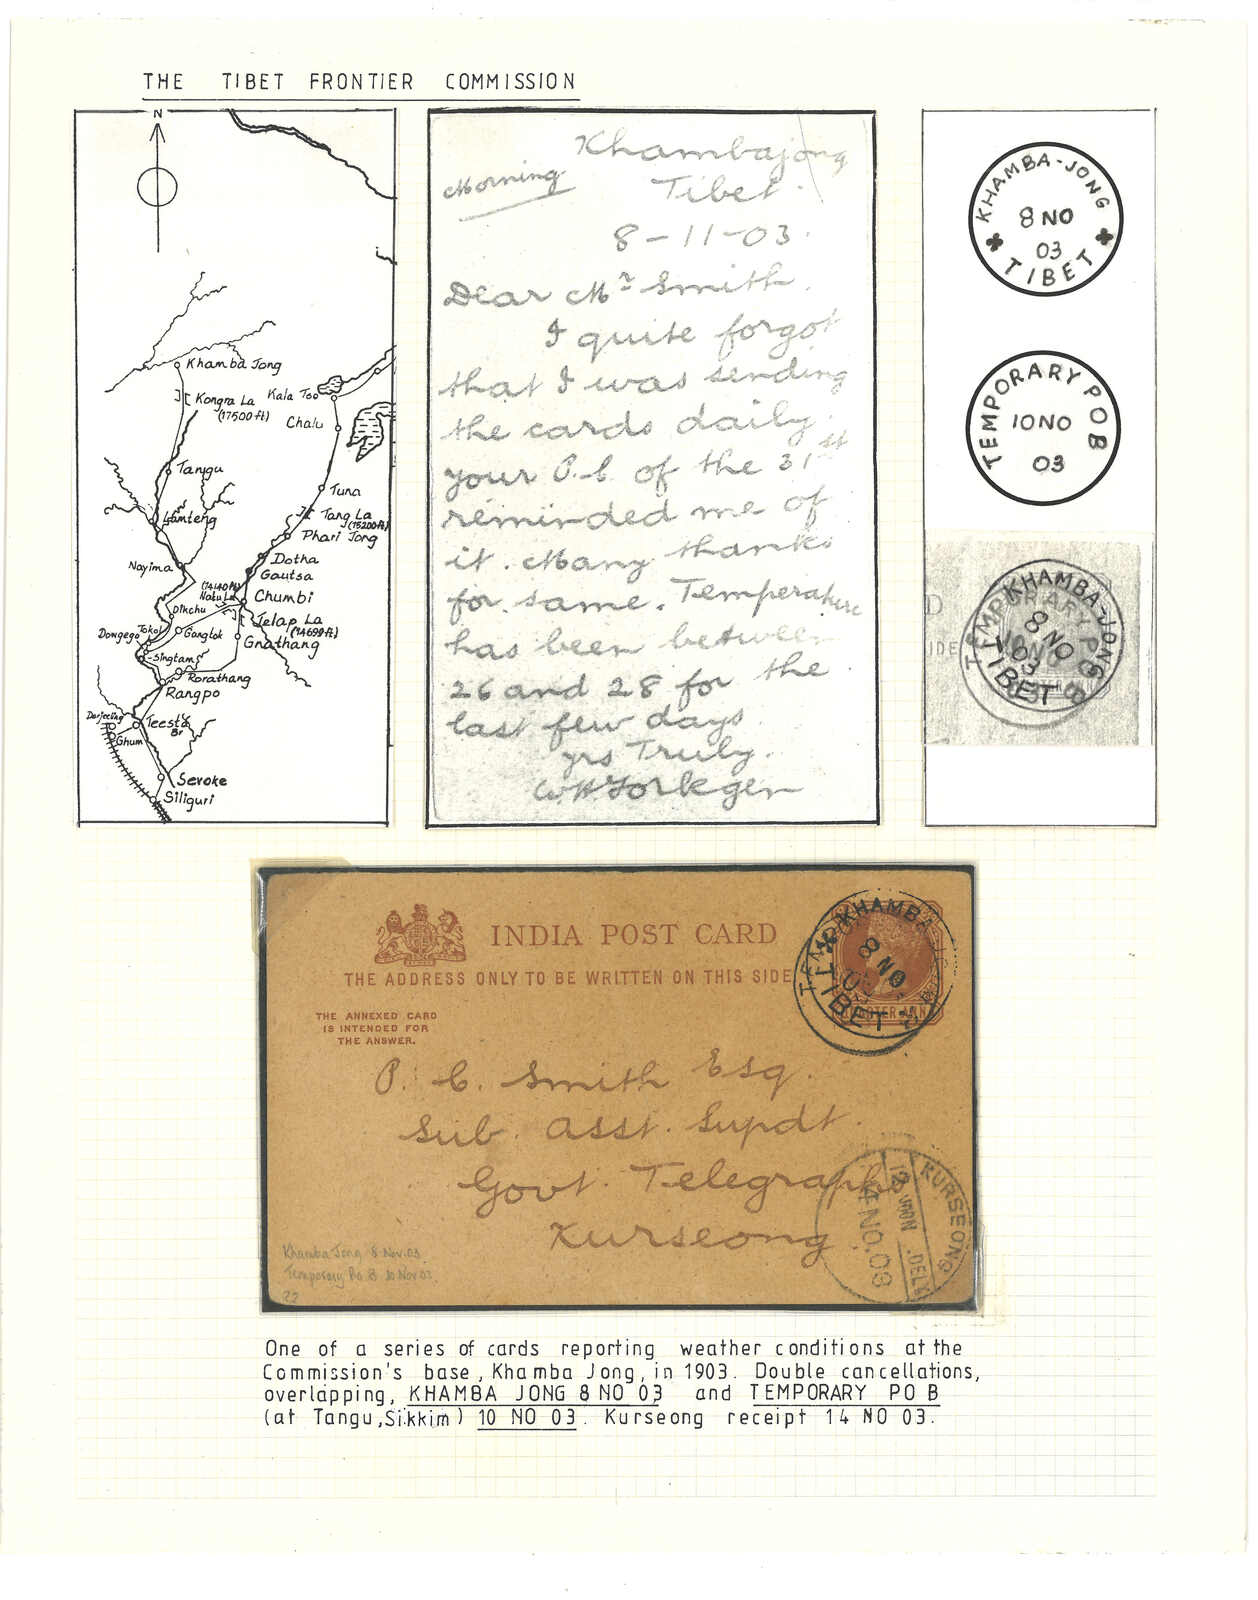 THE TIBET FRONTIER COMMISSION
N
Khamba Jong
Kongra La
(17500 ft)
Kala Tso
Chalu
Tangu
Tuna
Lamteng
Tang La
(15200ft)
Phari Jong
Nayima
Dotha
Gautsa
(14140ft)
Natu La
Chumbi
Dikchu
Jelap La
(14699ft)
Gnathang
Gangtok
Singtam
Rorathang
Rangpo
Darjeeling
Ghum
Teesta
Br
Sevoke
Siliguri
Khambajong
Morning
Tibet.
8-11-03.
Dear Mr Smith.
I quite forgot
that I was sending
the cards daily.
your P.C. of the 31st
reminded me of
it. Many thanks
for same. Temperature
has been between
26 and 28 for the
last few days.
yrs Truly.
KHAMBA-JONG
8 NO
03
TIBET
TEMPORARY P O B
10 NO
03
KHAMBA-JONG
TEMPORARY P O B
8 NO
03
TIBET
INDIA POST CARD
THE ADDRESS ONLY TO BE WRITTEN ON THIS SIDE
THE ANNEXED CARD
IS INTENDED FOR
THE ANSWER.
KHAMBA
8 NO
TIBET
P. C. Smith Esq.
Sub. Asst. Supdt.
Govt. Telegraphs
Kurseong
KURSEONG
12 NOON DELY
14 NO. 03
Khamba Jong 8 Nov. 03
Temporary Po B 10 Nov 03
22
One of a series of cards reporting weather conditions at the
Commission's base, Khamba Jong, in 1903. Double cancellations,
overlapping, KHAMBA JONG 8 NO 03 and TEMPORARY PO B
(at Tangu, Sikkim) 10 NO 03. Kurseong receipt 14 NO 03.